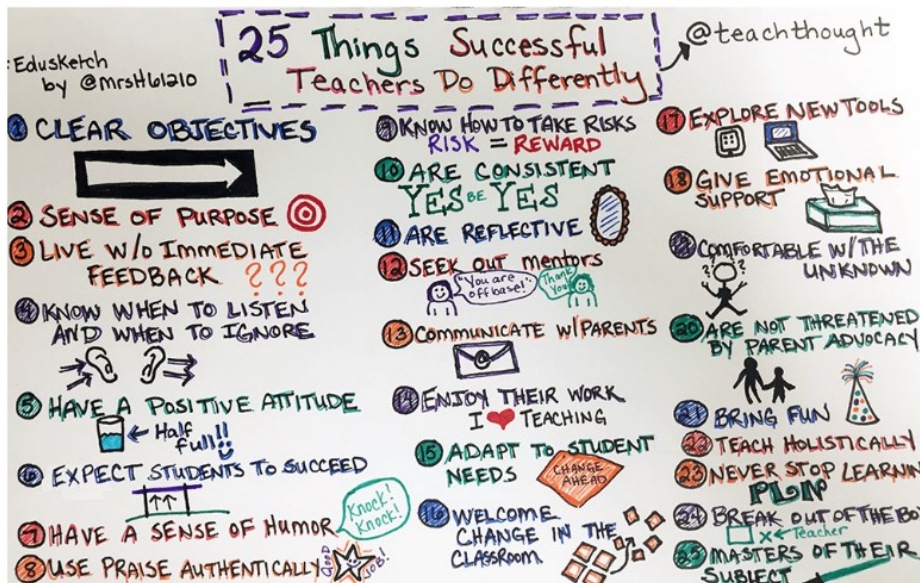 Edusketch
by @mrsH61210
25 Things Successful
Teachers Do Differently
@teachthought
1 CLEAR OBJECTIVES
2 SENSE OF PURPOSE
3 LIVE W/O Immediate
FEEDBACK ???
4 KNOW WHEN TO LISTEN
AND WHEN TO IGNORE
5 HAVE A POSITIVE ATTITUDE
Half
full!!
6 EXPECT STUDENTS TO SUCCEED
7 HAVE A SENSE OF HUMOR
Knock!
Knock!
8 USE PRAISE AUTHENTICALLY
GOOD JOB!
9 KNOW HOW TO TAKE RISKS
RISK = REWARD
10 ARE CONSISTENT
YES BE YES
11 ARE REFLECTIVE
12 SEEK OUT mentors
"You are
off base!"
Thank
You!
13 Communicate W/PARENTS
@
14 ENJOY THEIR WORK
I ❤ TEACHING
15 ADAPT TO STUDENT
NEEDS
CHANGE
AHEAD
16 WELCOME
CHANGE IN THE
CLASSROOM
17 EXPLORE NEW TOOLS
18 GIVE EMOTIONAL
SUPPORT
19 COMFORTABLE W/THE
UNKNOWN
? ?
20 ARE NOT THREATENED
BY PARENT ADVOCACY
21 BRING FUN
22 TEACH HOLISTICALLY
23 NEVER STOP LEARNIN
PLN
24 BREAK OUT OF THE BO
x ← Teacher
25 MASTERS OF THEIR
SUBJECT